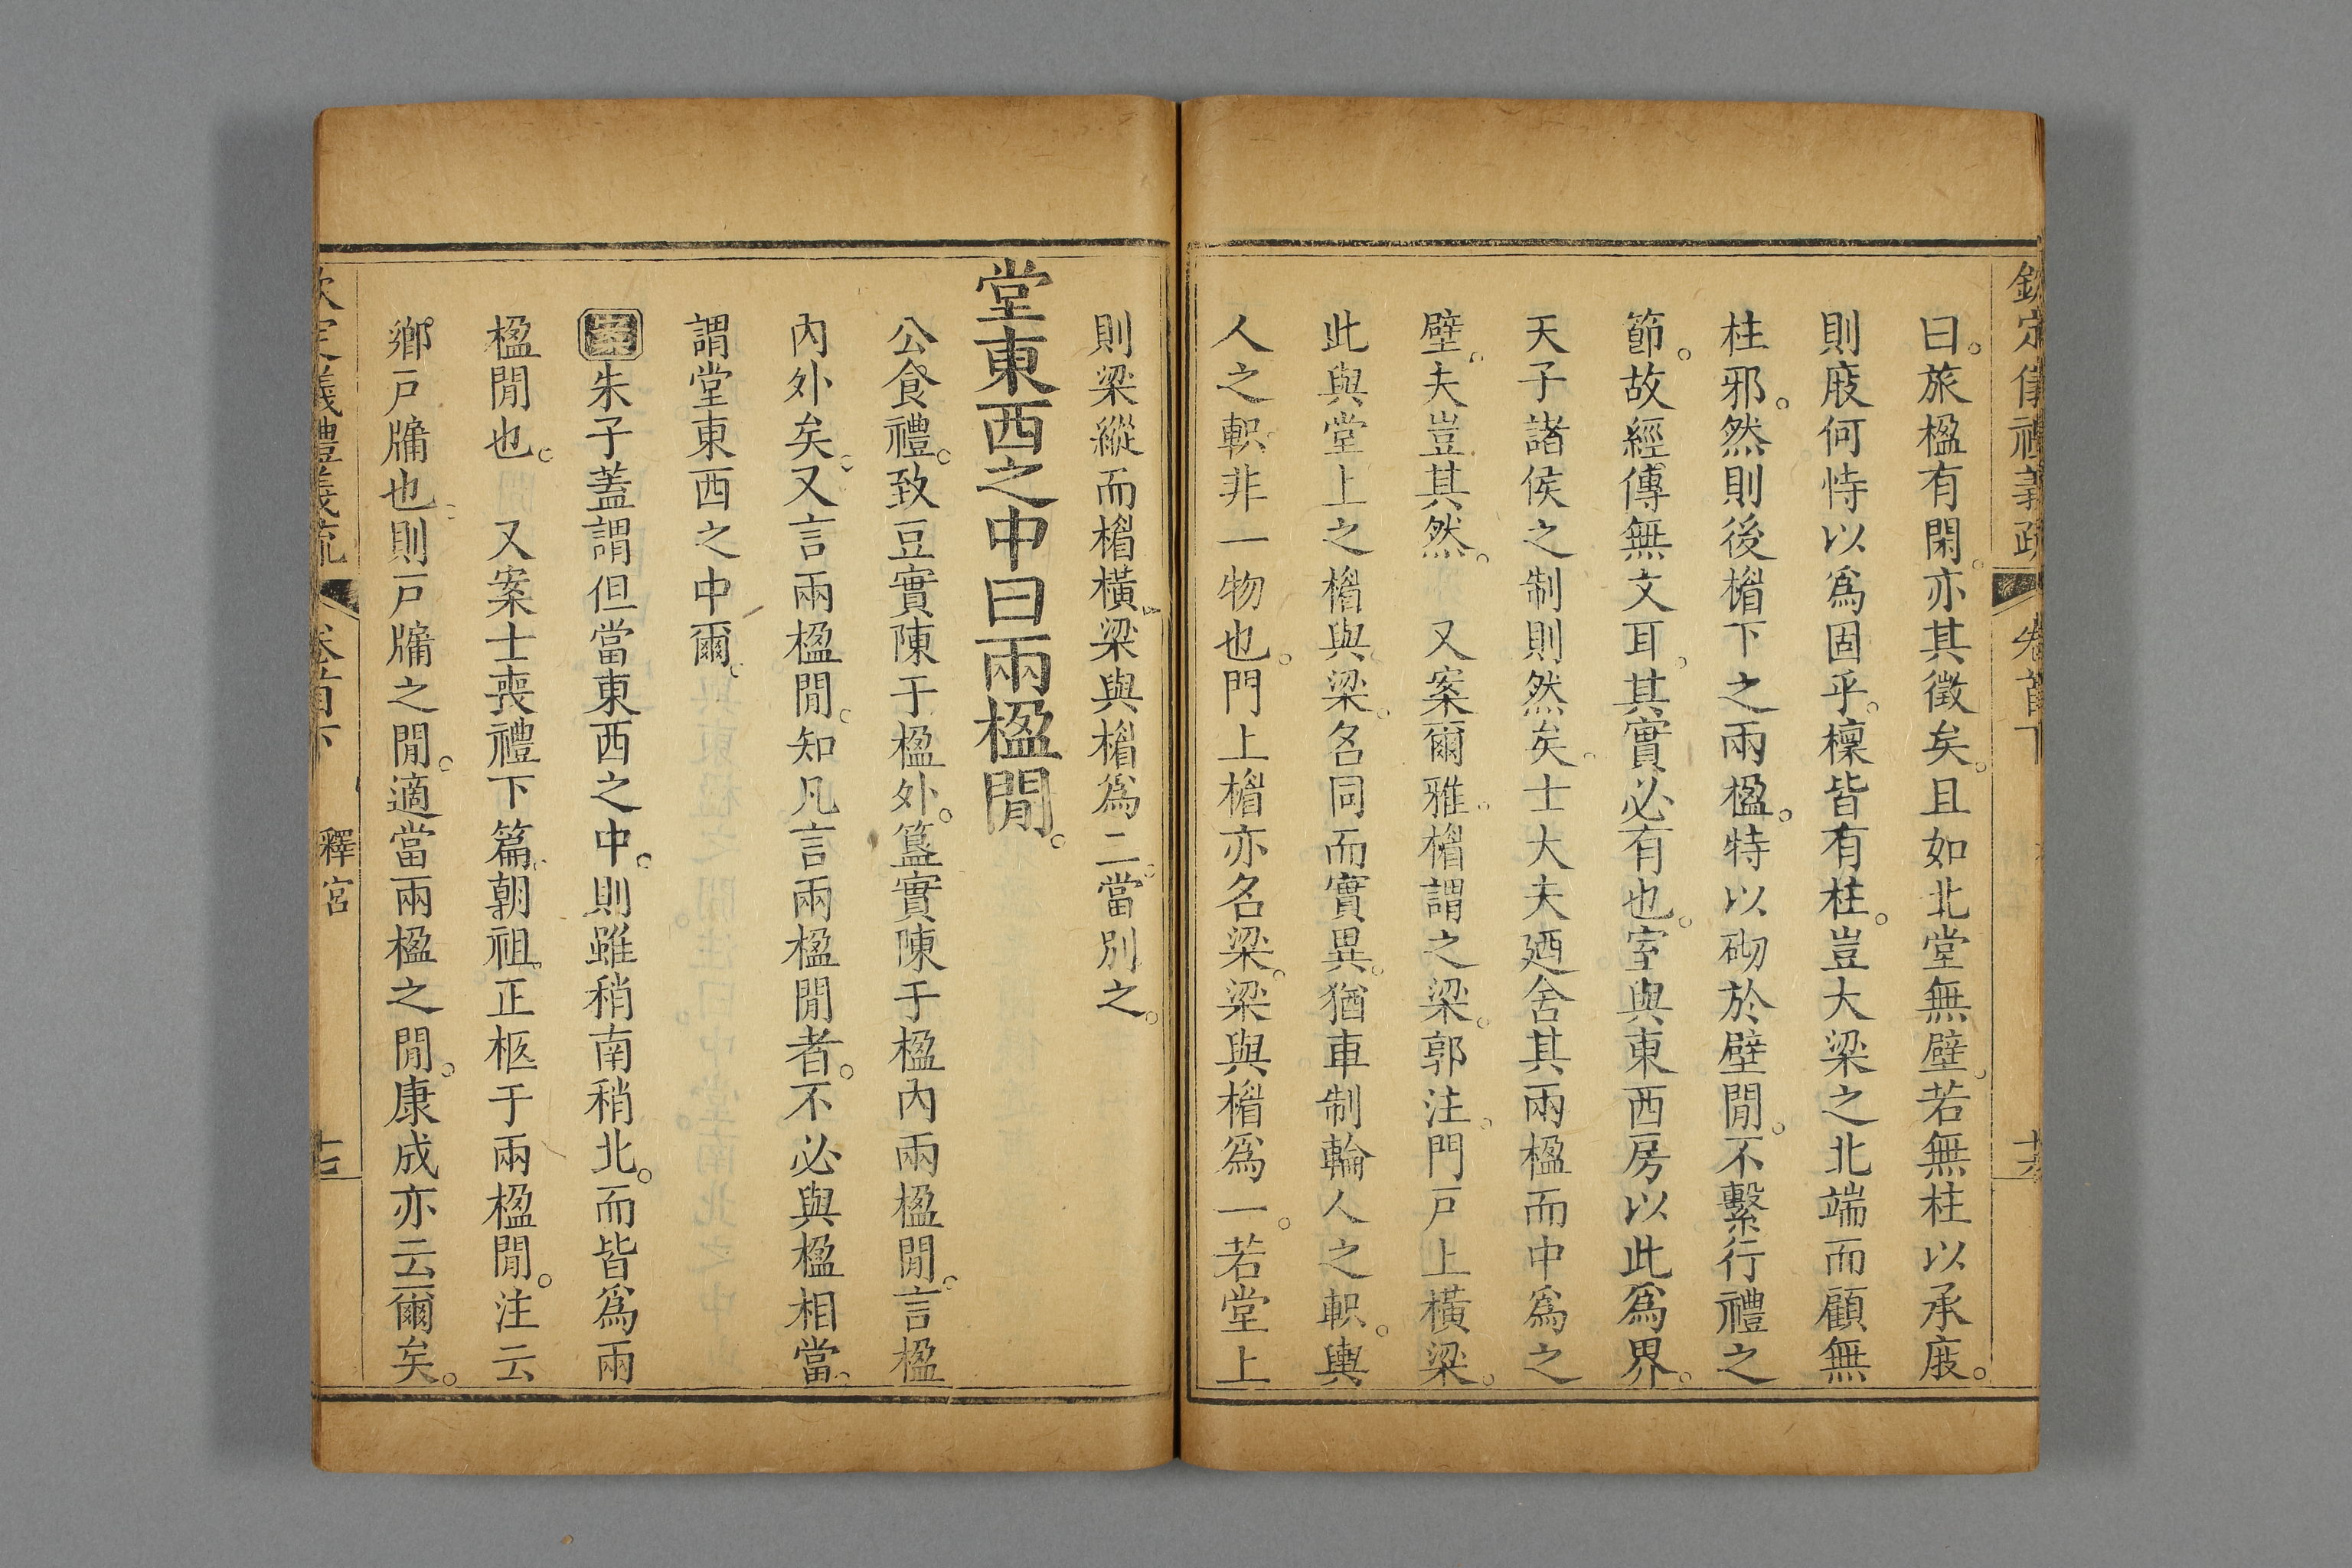 欽定儀禮義疏 卷首下
曰。旅楹有閑。亦其徵矣。且如北堂無壁。若無柱以承庪。
則庪何恃以爲固乎。檁皆有柱。豈大梁之北端而顧無
柱邪。然則後楣下之兩楹。特以砌於壁閒。不繫行禮之
節。故經傳無文耳。其實必有也。室與東西房以此爲界。
天子諸侯之制則然矣。士大夫廼舍其兩楹而中爲之
壁。夫豈其然。 又案爾雅。楣謂之梁。郭注。門戸上橫梁。
此與堂上之楣與梁。名同而實異。猶車制輪人之軹。輿
人之軹。非一物也。門上楣亦名梁。梁與楣爲一。若堂上
則梁縱而楣橫。梁與楣爲二。當別之。
堂東西之中曰兩楹閒。
公食禮。致豆實陳于楹外。簋實陳于楹內兩楹閒。言楹
內外矣。又言兩楹閒。知凡言兩楹閒者。不必與楹相當。
謂堂東西之中爾。
朱子蓋謂但當東西之中。則雖稍南稍北。而皆爲兩
楹閒也。 又案士喪禮下篇。朝祖。正柩于兩楹閒。注云
鄉戸牖也。則戸牖之閒。適當兩楹之閒。康成亦云爾矣。
欽定儀禮義疏 卷首下 釋宮